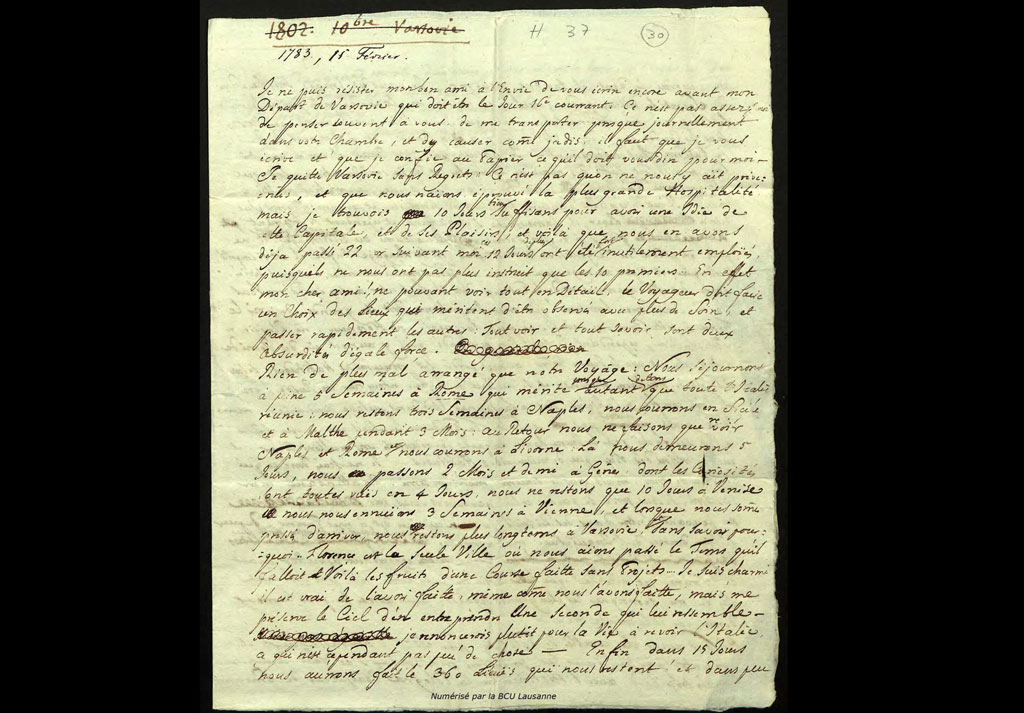 1802. 10bre Varsovie
H 37 30
1783, 15 Février.
Je ne puis résister mon bon ami à l'Envie de vous écrire encore avant mon
Départ de Varsovie qui doit être le Jour 16e courant. Ce n'est pas assez
de penser souvent à vous de me transporter presque journellement
dans votre Chambre, et d'y causer come jadis, il faut que je vous
écrive et que je confie au Papier ce qu'il doit vous dire pour moi –
Je quitte Varsovie sans Regrets. Ce n'est pas qu'on ne nous y ait
et que nous n'aions éprouvé la plus grande Hospitalité
mais je trouvois 10 Jours suffisans pour avoir une Idée de
cette Capitale, et de ses Plaisirs, et voilà que nous en avons
déja passé 22 or suivant moi ces 12 Jours ont été inutilement emploiés,
puisqu'ils ne nous ont pas plus instruit que les 10 premiers. En effet
mon cher ami! ne pouvant voir tout en Détail, le Voyageur doit faire
un Choix des Lieux qui méritent d'être observés avec plus de Soin, et
passer rapidement les autres: Tout voir et tout savoir sont deux
absurdités d'égale force.
Rien de plus mal arrangé que notre Voyage: Nous séjournons
à peine 5 Semaines à Rome qui mérite autant que toute l'Italie
réunie: nous restons trois Semaines à Naples, nous courrons en Sicile
et à Malthe pendant 3 Mois: au Retour nous ne faisons que voir
Naples et Rome et nous courrons à Livorne. Là nous demeurons 5
Jours, nous passons 2 Mois et demi à Gêne dont les Curiosités
sont toutes vues en 4 Jours, nous ne restons que 10 Jours à Venise
nous nous ennuions 3 Semaines à Vienne, et lorsque nous somes
pressés d'arriver, nous restons plus longtems à Varsovie, sans savoir pour-
-quoi. Florence est la seule Ville où nous aions passé le Tems qu'il
falloit. Voilà les fruits d'une Course faitte sans Projets – Je suis charmé
il est vrai de l'avoir faitte, même come nous l'avons faitte, mais me
préserve le Ciel d'en entreprendre Une seconde qui lui ressemble –
je renoncerois plutôt pour la Vie à revoir l'Italie
ce qui n'est cependant pas peu de chose — Enfin dans 15 Jours
nous aurons fait le 360 Lieues qui nous restent et dans peu
Numérisé par la BCU Lausanne